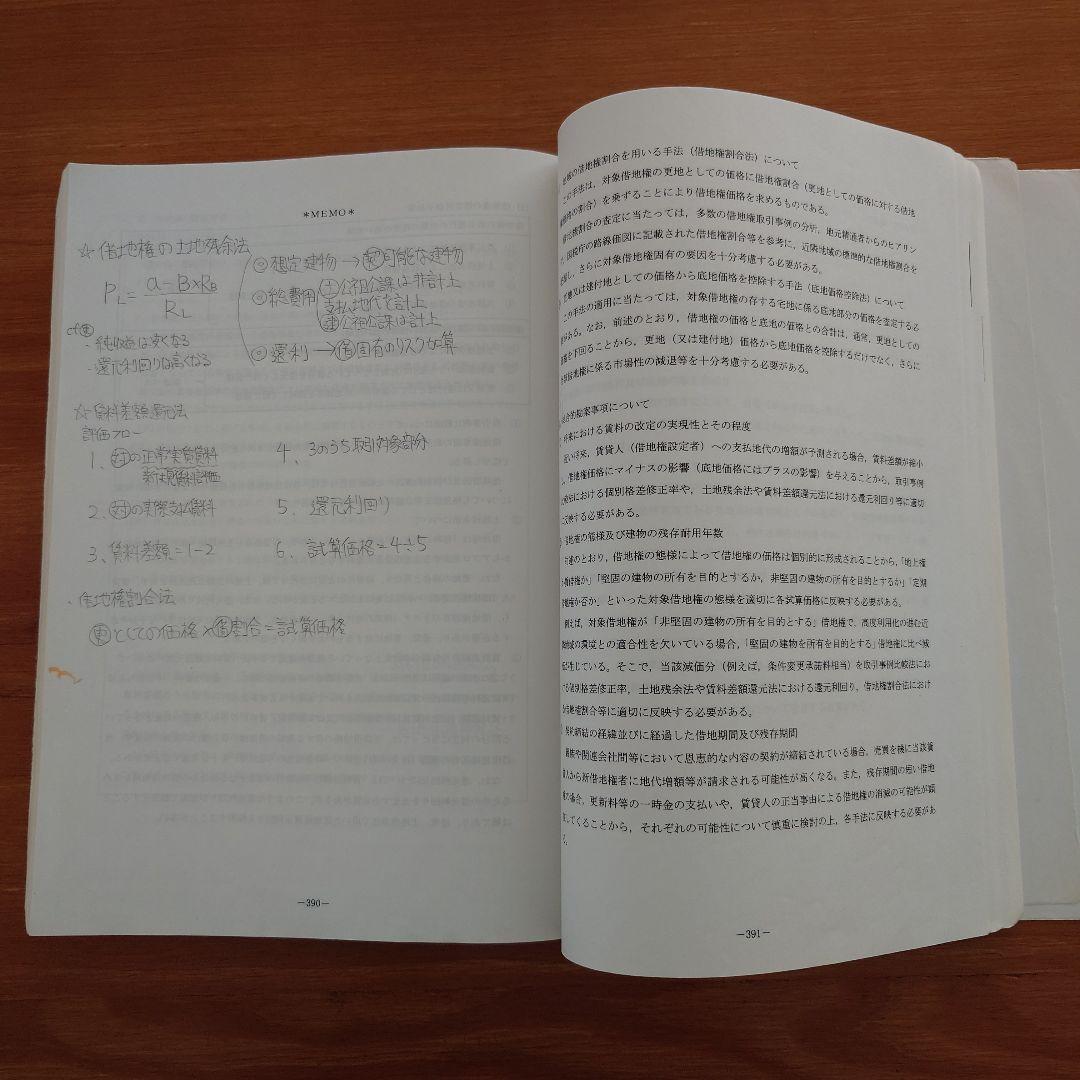 *MEMO*
☆借地権の土地残余法
P_L = (a－B×R_B) / R_L
cf 更
・純収益は安くなる
・還元利回りは高くなる
◎想定建物→契可能な建物
◎総費用 土公租公課は非計上
支払地代を計上
建公租公課は計上
◎還利→借固有のリスク加算
☆賃料差額還元法
評価フロー
1、対の正常実質賃料
新規賃料評価
2、対の実際支払賃料
3、賃料差額＝1－2
4、3のうち取引対象部分
5、還元利回り
6、試算価格＝4÷5
・借地権割合法
更としての価格×借割合＝試算価格
－390－
の借地権割合を用いる手法（借地権割合法）について
この手法は，対象借地権の更地としての価格に借地権割合（更地としての価格に対する借地
の割合）を乗ずることにより借地権価格を求めるものである。
権割合の査定に当たっては，多数の借地権取引事例の分析，地元精通者からのヒアリン
国税庁の路線価図に記載された借地権割合等を参考に，近隣地域の標準的な借地権割合を
し，さらに対象借地権固有の要因を十分考慮する必要がある。
又は建付地としての価格から底地価格を控除する手法（底地価格控除法）について
の手法の適用に当たっては，対象借地権の存する宅地に係る底地部分の価格を査定する必
がある。なお，前述のとおり，借地権の価格と底地の価格との合計は，通常，更地としての
を下回ることから，更地（又は建付地）価格から底地価格を控除するだけでなく，さらに
借地権に係る市場性の減退等を十分考慮する必要がある。
合的勘案事項について
将来における賃料の改定の実現性とその程度
い将来，賃貸人（借地権設定者）への支払地代の増額が予測される場合，賃料差額が縮小
，借地権価格にマイナスの影響（底地価格にはプラスの影響）を与えることから，取引事例
における個別格差修正率や，土地残余法や賃料差額還元法における還元利回り等に適切
反映する必要がある。
借地権の態様及び建物の残存耐用年数
述のとおり，借地権の態様によって借地権の価格は個別的に形成されることから，「地上権
か」「堅固の建物の所有を目的とするか，非堅固の建物の所有を目的とするか」「定期
か否か」といった対象借地権の態様を適切に各試算価格に反映する必要がある。
例えば，対象借地権が「非堅固の建物の所有を目的とする」借地権で，高度利用化の進む近
地域の環境との適合性を欠いている場合，「堅固の建物を所有を目的とする」借地権に比べ減
生じている。そこで，当該減価分（例えば，条件変更承諾料相当）を取引事例比較法にお
る個別格差修正率，土地残余法や賃料差額還元法における還元利回り，借地権割合法におけ
借地権割合等に適切に反映する必要がある。
契約締結の経緯並びに経過した借地期間及び残存期間
親族や関連会社間等において恩恵的な内容の契約が締結されている場合，売買を機に当該賃
人から新借地権者に地代増額等が請求される可能性が高くなる。また，残存期間の短い借地
の場合，更新料等の一時金の支払いや，賃貸人の正当事由による借地権の消滅の可能性が顕
してくることから，それぞれの可能性について慎重に検討の上，各手法に反映する必要があ
る。
－391－